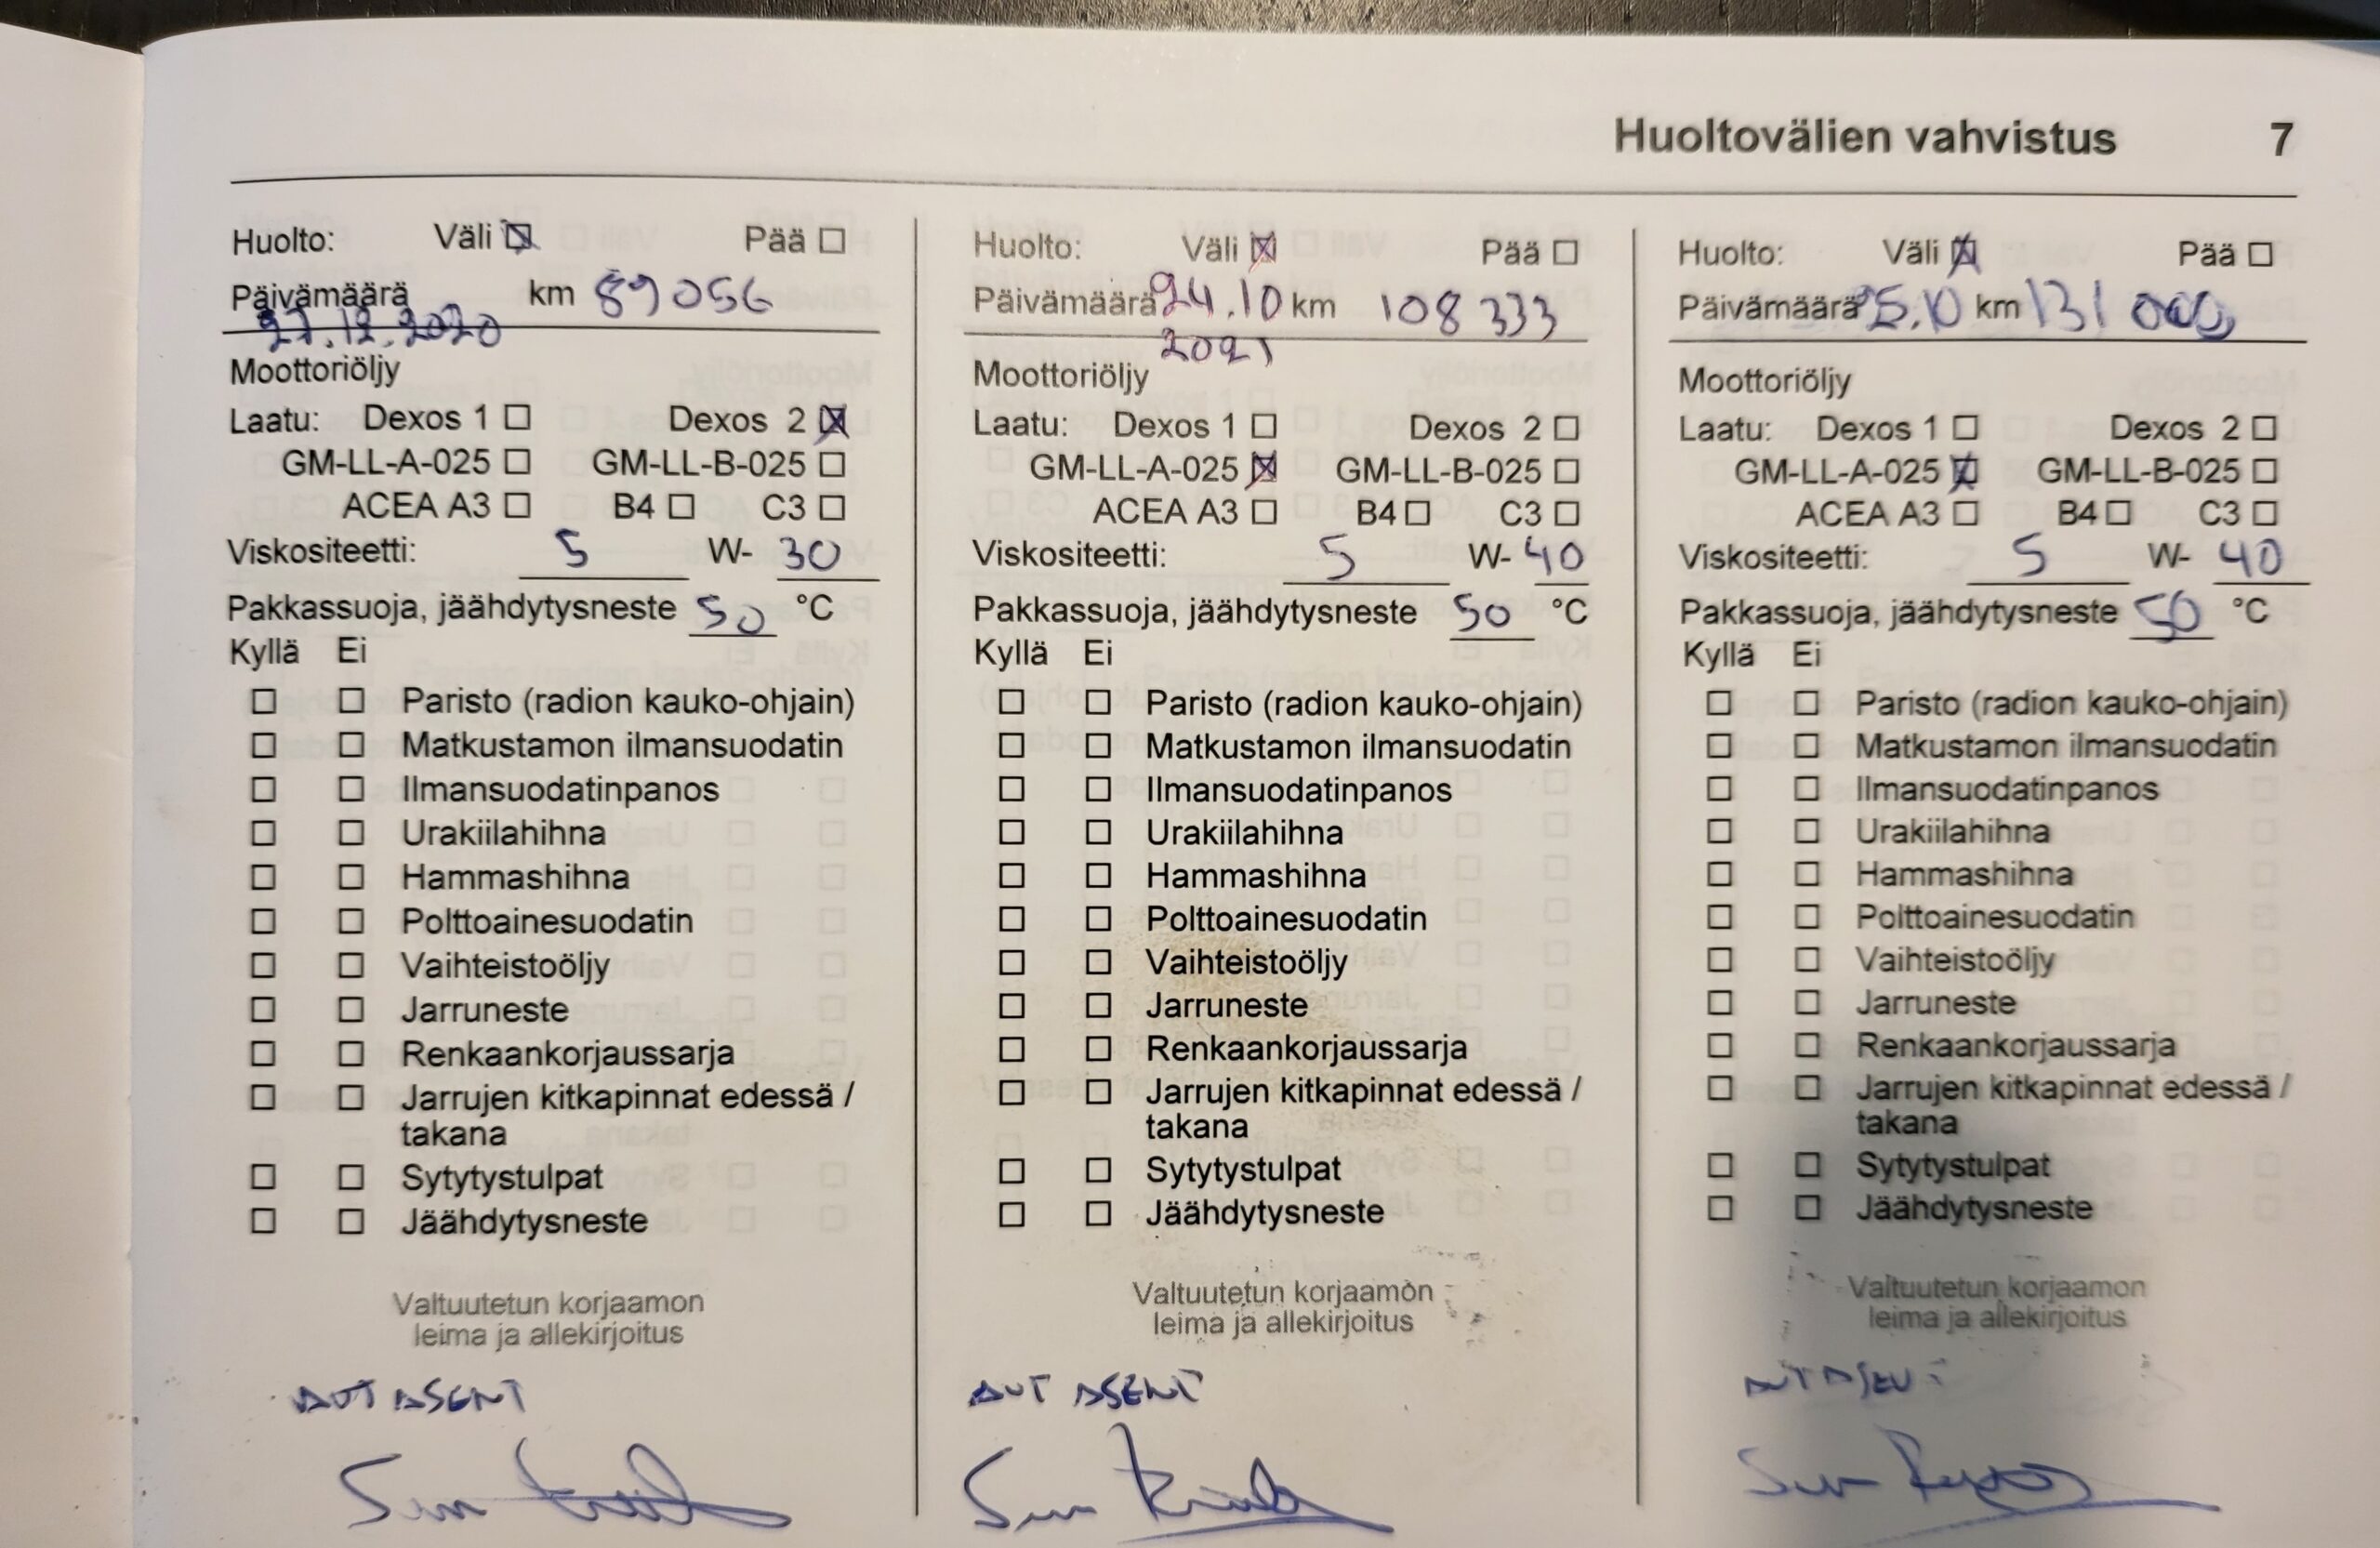 Huoltovälien vahvistus 7
Huolto: Väli ☒ Pää ☐
Päivämäärä km 89056
27.12.2020
Moottoriöljy
Laatu: Dexos 1 ☐ Dexos 2 ☒
GM-LL-A-025 ☐ GM-LL-B-025 ☐
ACEA A3 ☐ B4 ☐ C3 ☐
Viskositeetti: 5 W- 30
Pakkassuoja, jäähdytysneste 50 °C
Kyllä Ei
☐ ☐ Paristo (radion kauko-ohjain)
☐ ☐ Matkustamon ilmansuodatin
☐ ☐ Ilmansuodatinpanos
☐ ☐ Urakiilahihna
☐ ☐ Hammashihna
☐ ☐ Polttoainesuodatin
☐ ☐ Vaihteistoöljy
☐ ☐ Jarruneste
☐ ☐ Renkaankorjaussarja
☐ ☐ Jarrujen kitkapinnat edessä /
takana
☐ ☐ Sytytystulpat
☐ ☐ Jäähdytysneste
Valtuutetun korjaamon
leima ja allekirjoitus
AUT ASENT
Huolto: Väli ☒ Pää ☐
Päivämäärä 24.10 km 108 333
2021
Moottoriöljy
Laatu: Dexos 1 ☐ Dexos 2 ☐
GM-LL-A-025 ☒ GM-LL-B-025 ☐
ACEA A3 ☐ B4 ☐ C3 ☐
Viskositeetti: 5 W- 40
Pakkassuoja, jäähdytysneste 50 °C
Kyllä Ei
☐ ☐ Paristo (radion kauko-ohjain)
☐ ☐ Matkustamon ilmansuodatin
☐ ☐ Ilmansuodatinpanos
☐ ☐ Urakiilahihna
☐ ☐ Hammashihna
☐ ☐ Polttoainesuodatin
☐ ☐ Vaihteistoöljy
☐ ☐ Jarruneste
☐ ☐ Renkaankorjaussarja
☐ ☐ Jarrujen kitkapinnat edessä /
takana
☐ ☐ Sytytystulpat
☐ ☐ Jäähdytysneste
Valtuutetun korjaamon
leima ja allekirjoitus
AUT ASENT
Huolto: Väli ☒ Pää ☐
Päivämäärä km 131 000
Moottoriöljy
Laatu: Dexos 1 ☐ Dexos 2 ☐
GM-LL-A-025 ☒ GM-LL-B-025 ☐
ACEA A3 ☐ B4 ☐ C3 ☐
Viskositeetti: 5 W- 40
Pakkassuoja, jäähdytysneste 50 °C
Kyllä Ei
☐ ☐ Paristo (radion kauko-ohjain)
☐ ☐ Matkustamon ilmansuodatin
☐ ☐ Ilmansuodatinpanos
☐ ☐ Urakiilahihna
☐ ☐ Hammashihna
☐ ☐ Polttoainesuodatin
☐ ☐ Vaihteistoöljy
☐ ☐ Jarruneste
☐ ☐ Renkaankorjaussarja
☐ ☐ Jarrujen kitkapinnat edessä /
takana
☐ ☐ Sytytystulpat
☐ ☐ Jäähdytysneste
Valtuutetun korjaamon
leima ja allekirjoitus